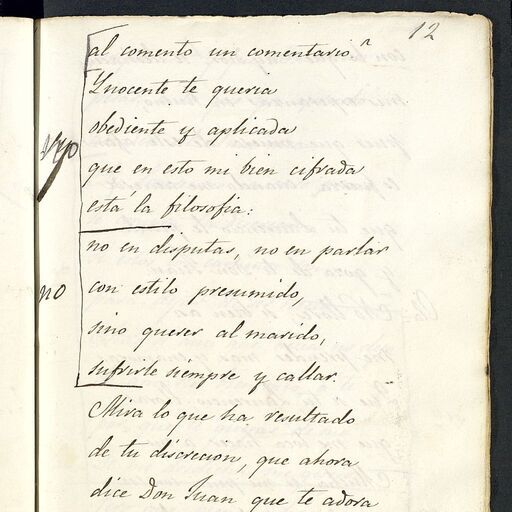 12
al comento un comentario
Ynocente te queria
obediente y aplicada
que en esto mi bien cifrada
está la filosofia:
no en disputas, no en parlar
no
con estilo presumido,
sino querer al marido,
sufrirle siempre y callar.
Mira lo que ha resultado
de tu discrecion, que ahora
dice Don Juan que te adora